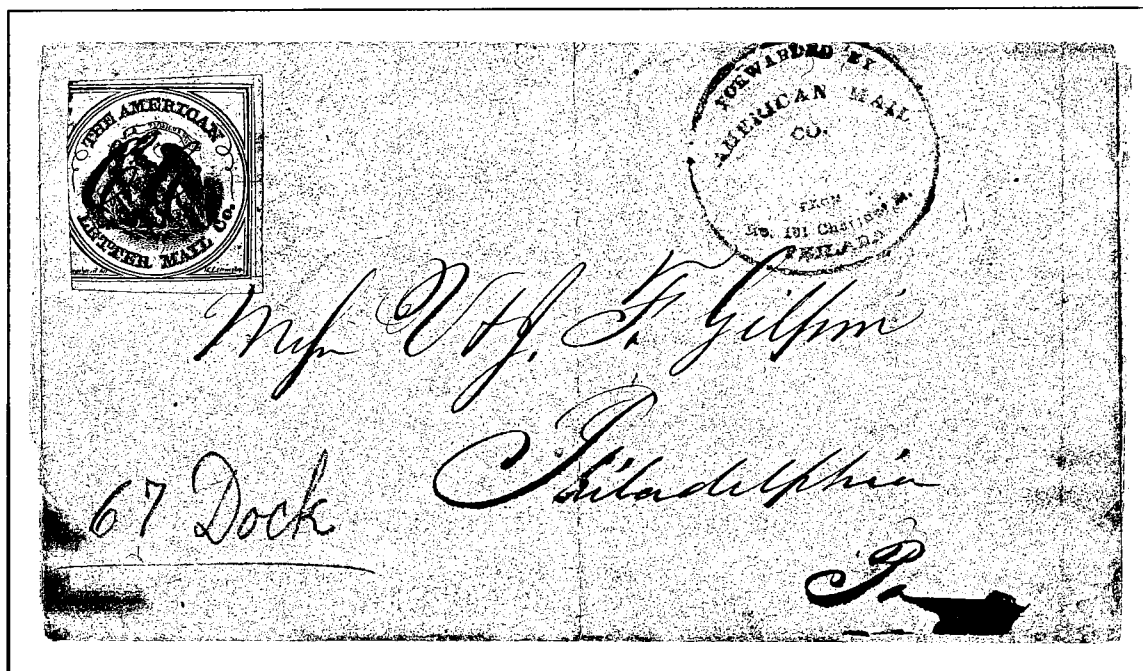 THE AMERICAN
LETTER MAIL Co.
FORWARDED BY
AMERICAN MAIL
CO.
FROM
No. 101 Chestnut St.
PHILADA
Messrs V & J. F. Gilpin
Philadelphia
Pa
67 Dock